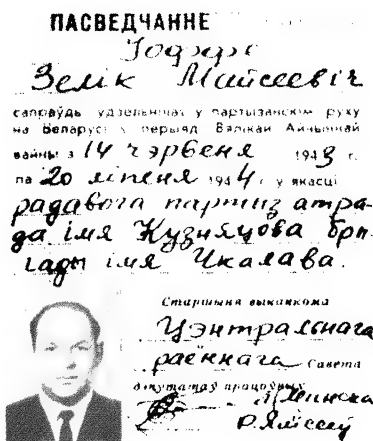 ПАСВЕДЧАННЕ
Іоффе
Зелік Майсеевіч
сапраўдь удзельнічаў у партызанскім руху
на Беларусі ў перыяд Вялікай Айчыннай
вайны з 14 чэрвеня 1943 г.
па 20 ліпеня 1944 г. у якасці
радавога партыз атра-
да імя Кузняцова бры-
гады імя Чкалава.
Старшыня выканкома
Цэнтральнага
раённага Савета
дэпутатаў працоўных
г. Мінска